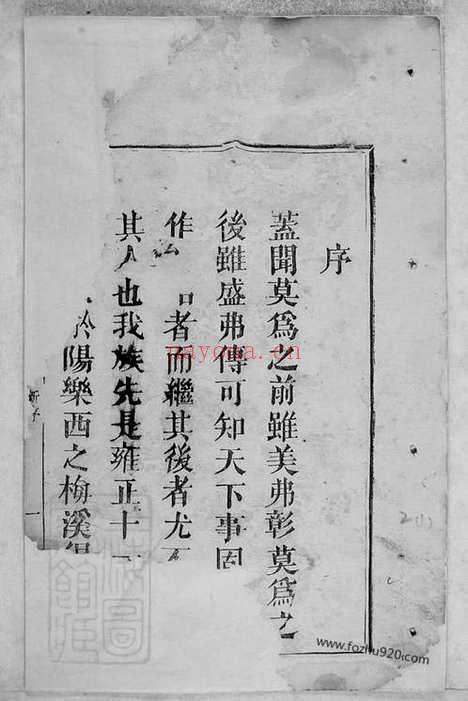 序
蓋聞莫爲之前雖美弗彰莫爲之
後雖盛弗傳可知天下事固
作 者而繼其後者尤
其人也我族先是雍正十
陽樂西之梅溪
nayona.cn
www.fozhu920.com